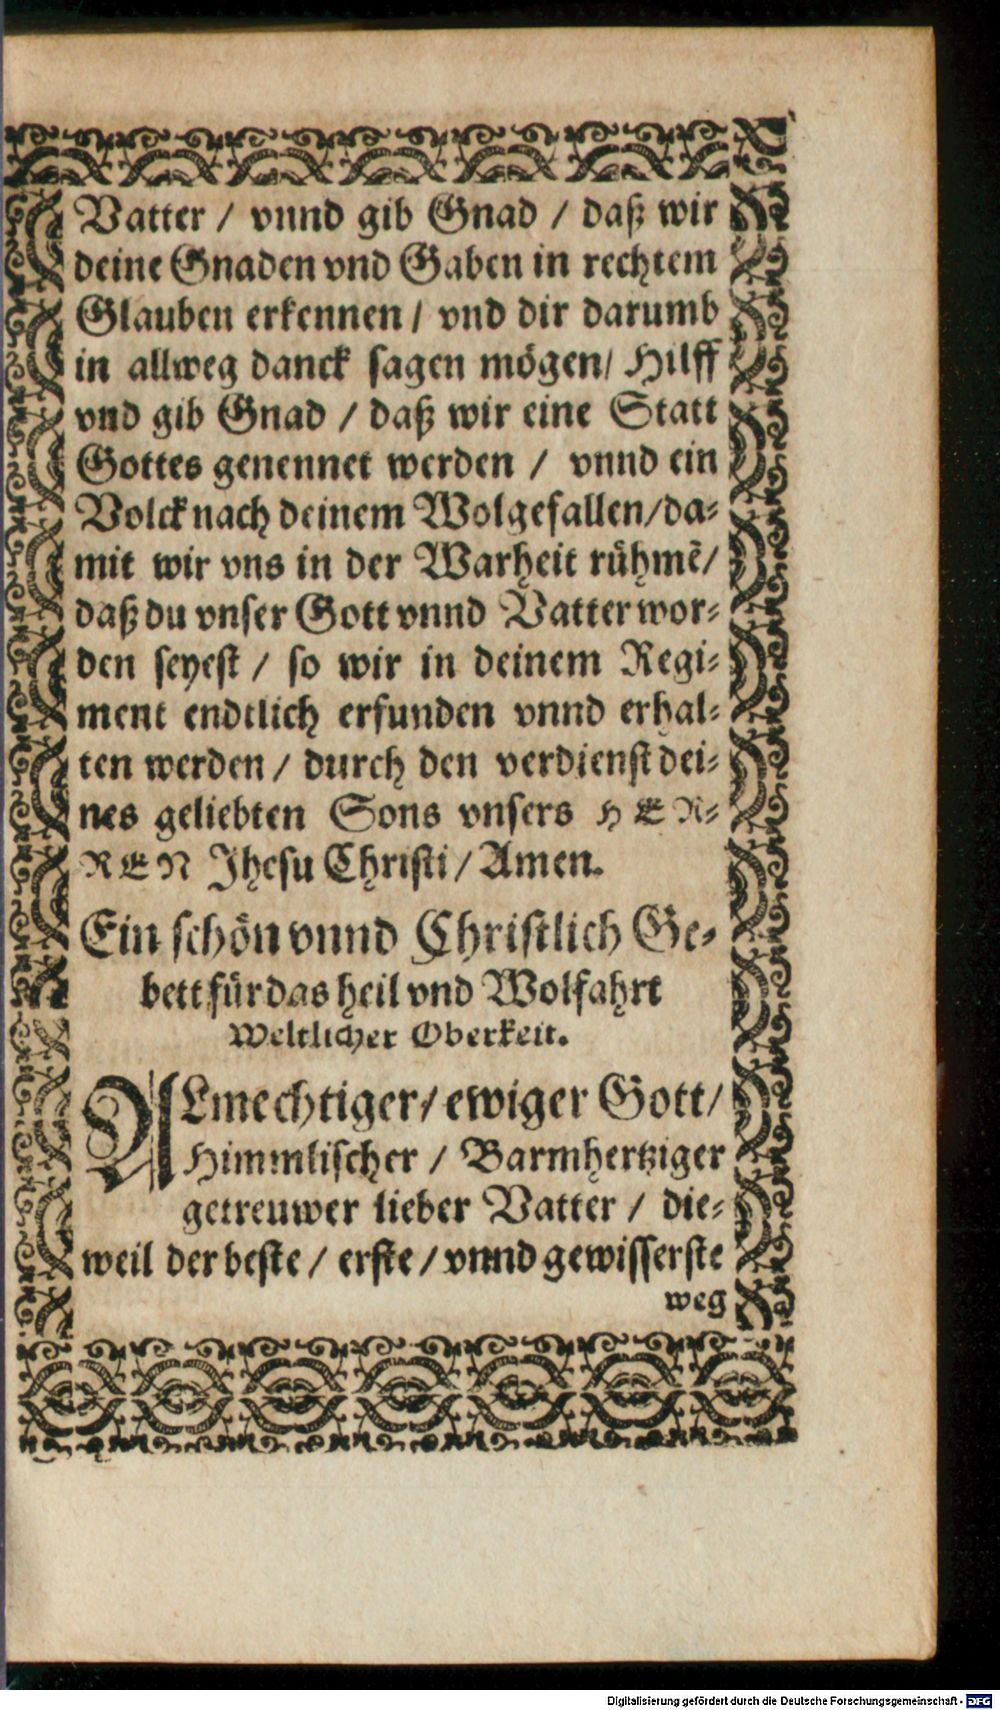 Vatter / vnnd gib Gnad / daß wir
deine Gnaden vnd Gaben in rechtem
Glauben erkennen / vnd dir darumb
in allweg danck sagen mögen / Hilff
vnd gib Gnad / daß wir eine Statt
Gottes genennet werden / vnnd ein
Volck nach deinem Wolgefallen / da-
mit wir vns in der Warheit rühmẽ /
daß du vnser Gott vnnd Vatter wor-
den seyest / so wir in deinem Regi-
ment endtlich erfunden vnnd erhal-
ten werden / durch den verdienst dei-
nes geliebten Sons vnsers HER-
REN Jhesu Christi / Amen.
Ein schön vnnd Christlich Ge-
bett für das heil vnd Wolfahrt
Weltlicher Oberkeit.
ALmechtiger / ewiger Gott /
Himmlischer / Barmhertziger
getreuwer lieber Vatter / die-
weil der beste / erste / vnnd gewisserste
weg
Digitalisierung gefördert durch die Deutsche Forschungsgemeinschaft - DFG